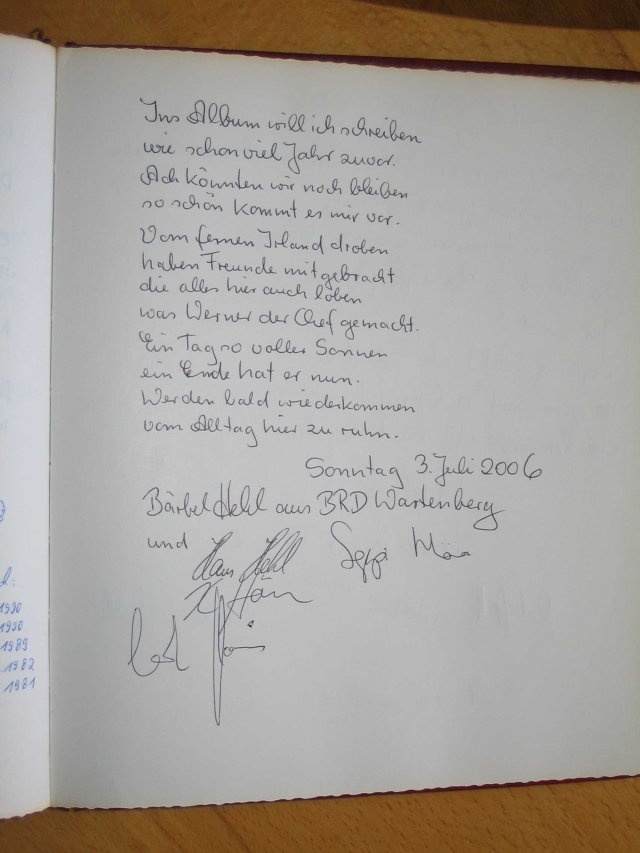 Ins Album will ich schreiben
wie schon viel Jahr zuvor.
Ach könnten wir noch bleiben
so schön kommt es mir vor.
Vom fernen Irland droben
haben Freunde mitgebracht
die alles hier auch loben
was Werner der Chef gemacht.
Ein Tag so voller Sonnen
ein Ende hat er nun.
Werden bald wiederkommen
vom Alltag hier zu ruhn.
Sonntag 3. Juli 2006
Bärbel Hehl aus BRD Wartenberg
und
Hans Hehl
1990
1990
1989
1982
1981